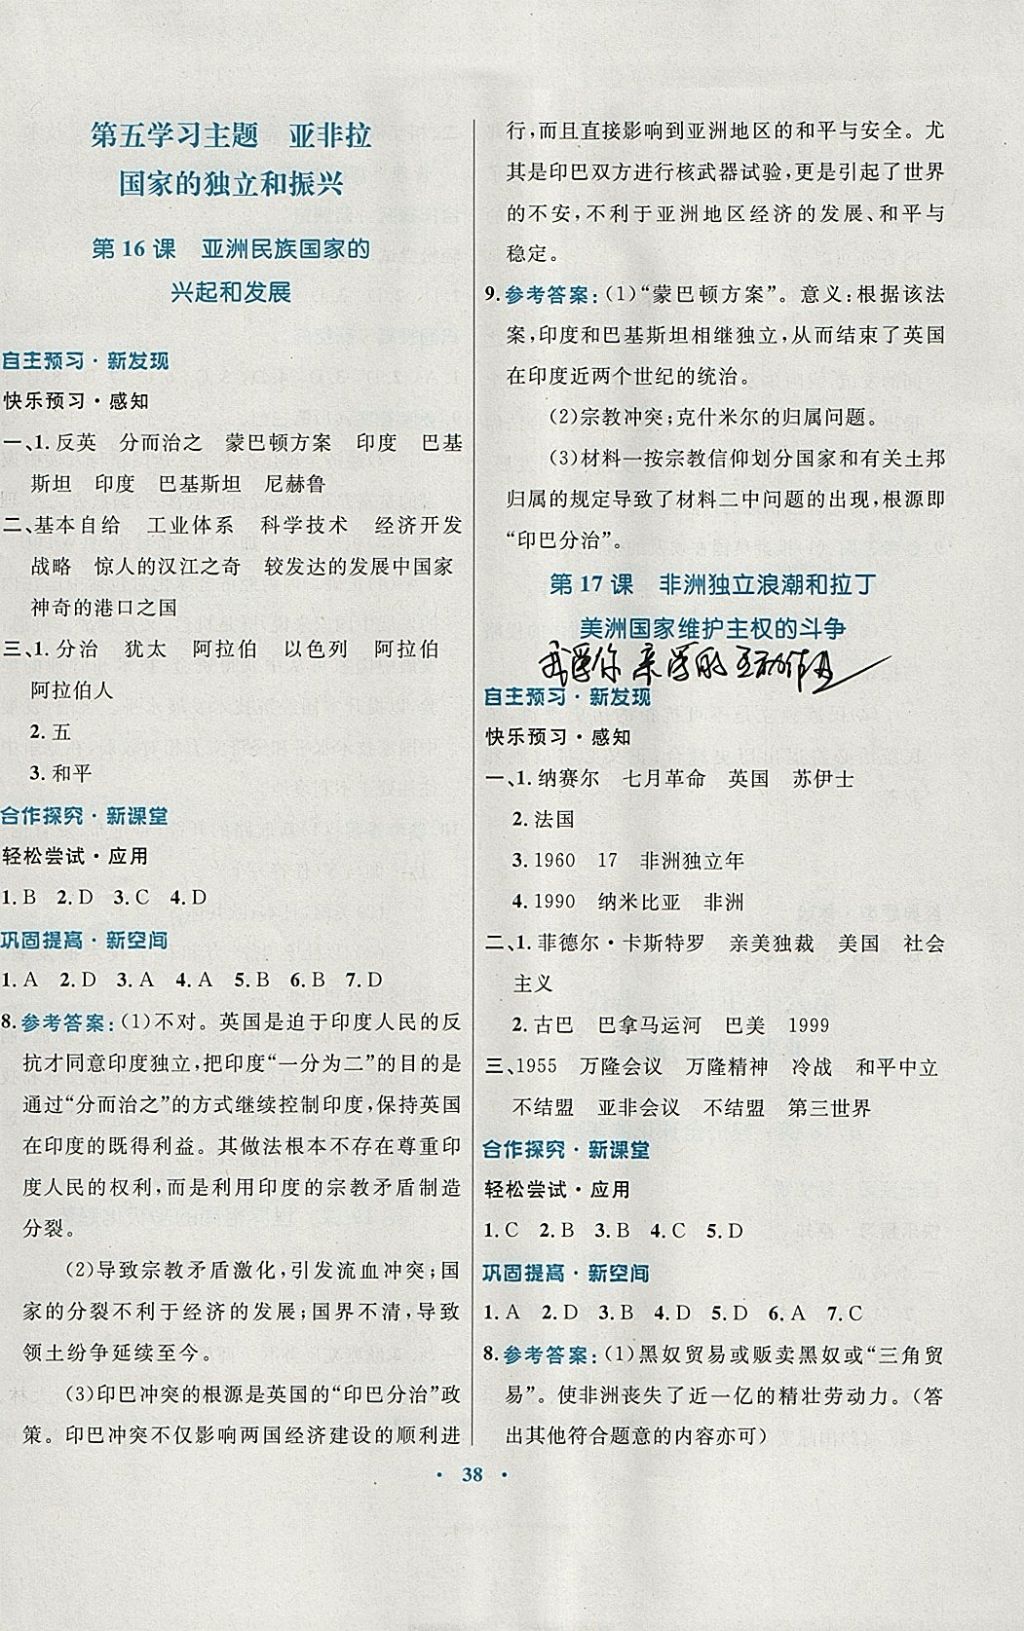 第五学习主题　亚非拉
国家的独立和振兴
第 16 课　亚洲民族国家的
兴起和发展
自主预习·新发现
快乐预习·感知
一、1. 反英　分而治之　蒙巴顿方案　印度　巴基
斯坦　印度　巴基斯坦　尼赫鲁
二、基本自给　工业体系　科学技术　经济开发
战略　惊人的汉江之奇　较发达的发展中国家
神奇的港口之国
三、1. 分治　犹太　阿拉伯　以色列　阿拉伯
阿拉伯人
2. 五
3. 和平
合作探究·新课堂
轻松尝试·应用
1. B　2. D　3. C　4. D
巩固提高·新空间
1. A　2. D　3. A　4. A　5. B　6. B　7. D
8. 参考答案:(1)不对。英国是迫于印度人民的反
抗才同意印度独立,把印度“一分为二”的目的是
通过“分而治之”的方式继续控制印度,保持英国
在印度的既得利益。其做法根本不存在尊重印
度人民的权利,而是利用印度的宗教矛盾制造
分裂。
(2)导致宗教矛盾激化,引发流血冲突;国
家的分裂不利于经济的发展;国界不清,导致
领土纷争延续至今。
(3)印巴冲突的根源是英国的“印巴分治”政
策。印巴冲突不仅影响两国经济建设的顺利进
行,而且直接影响到亚洲地区的和平与安全。尤
其是印巴双方进行核武器试验,更是引起了世界
的不安,不利于亚洲地区经济的发展、和平与
稳定。
9. 参考答案:(1)“蒙巴顿方案”。意义:根据该法
案,印度和巴基斯坦相继独立,从而结束了英国
在印度近两个世纪的统治。
(2)宗教冲突;克什米尔的归属问题。
(3)材料一按宗教信仰划分国家和有关土邦
归属的规定导致了材料二中问题的出现,根源即
“印巴分治”。
第 17 课　非洲独立浪潮和拉丁
美洲国家维护主权的斗争
自主预习·新发现
快乐预习·感知
一、1. 纳赛尔　七月革命　英国　苏伊士
2. 法国
3. 1960　17　非洲独立年
4. 1990　纳米比亚　非洲
二、1. 菲德尔·卡斯特罗　亲美独裁　美国　社会
主义
2. 古巴　巴拿马运河　巴美　1999
三、1955　万隆会议　万隆精神　冷战　和平中立
不结盟　亚非会议　不结盟　第三世界
合作探究·新课堂
轻松尝试·应用
1. C　2. B　3. B　4. C　5. D
巩固提高·新空间
1. A　2. D　3. B　4. D　5. D　6. A　7. C
8. 参考答案:(1)黑奴贸易或贩卖黑奴或“三角贸
易”。使非洲丧失了近一亿的精壮劳动力。(答
出其他符合题意的内容亦可)
· 38 ·